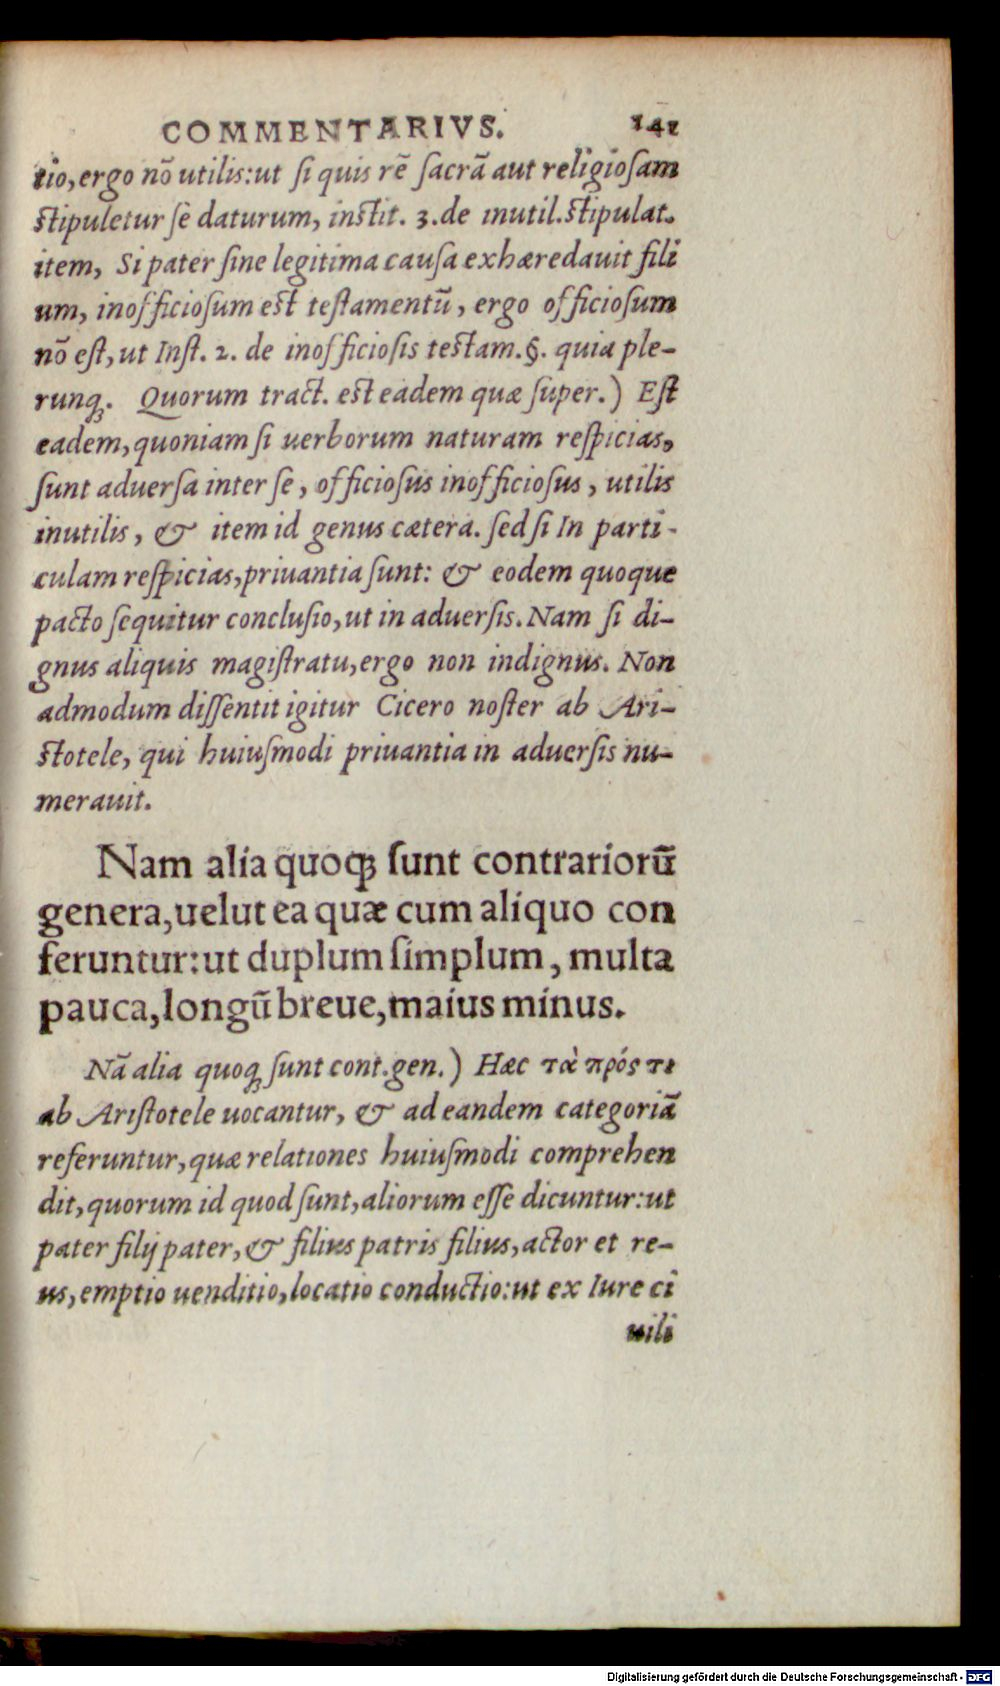 COMMENTARIVS. 141
tio, ergo nõ utilis: ut ſi quis rẽ ſacrã aut religioſam
ſtipuletur ſe daturum, inſtit. 3. de inutil. ſtipulat.
item, Si pater ſine legitima cauſa exhæredauit fili
um, inofficioſum eſt teſtamentũ, ergo officioſum
nõ eſt, ut Inſt. 2. de inofficioſis teſtam. §. quia ple-
runqꝫ. Quorum tract. eſt eadem quæ ſuper.) Eſt
eadem, quoniam ſi uerborum naturam reſpicias,
ſunt aduerſa inter ſe, officioſus inofficioſus, utilis
inutilis, & item id genus cætera. ſed ſi In parti-
culam reſpicias, priuantia ſunt: & eodem quoque
pacto ſequitur concluſio, ut in aduerſis. Nam ſi di-
gnus aliquis magiſtratu, ergo non indignus. Non
admodum diſſentit igitur Cicero noſter ab Ari-
ſtotele, qui huiuſmodi priuantia in aduerſis nu-
merauit.
Nam alia quoqꝫ ſunt contrariorũ
genera, uelut ea quæ cum aliquo con
feruntur: ut duplum ſimplum, multa
pauca, longũ breue, maius minus.
Nã alia quoqꝫ ſunt cont. gen.) Hæc τὰ πρός τι
ab Ariſtotele uocantur, & ad eandem categoriã
referuntur, quæ relationes huiuſmodi comprehen
dit, quorum id quod ſunt, aliorum eſſe dicuntur: ut
pater filij pater, & filius patris filius, actor et re-
us, emptio uenditio, locatio conductio: ut ex Iure ci
uili
Digitalisierung gefördert durch die Deutsche Forschungsgemeinschaft - DFG